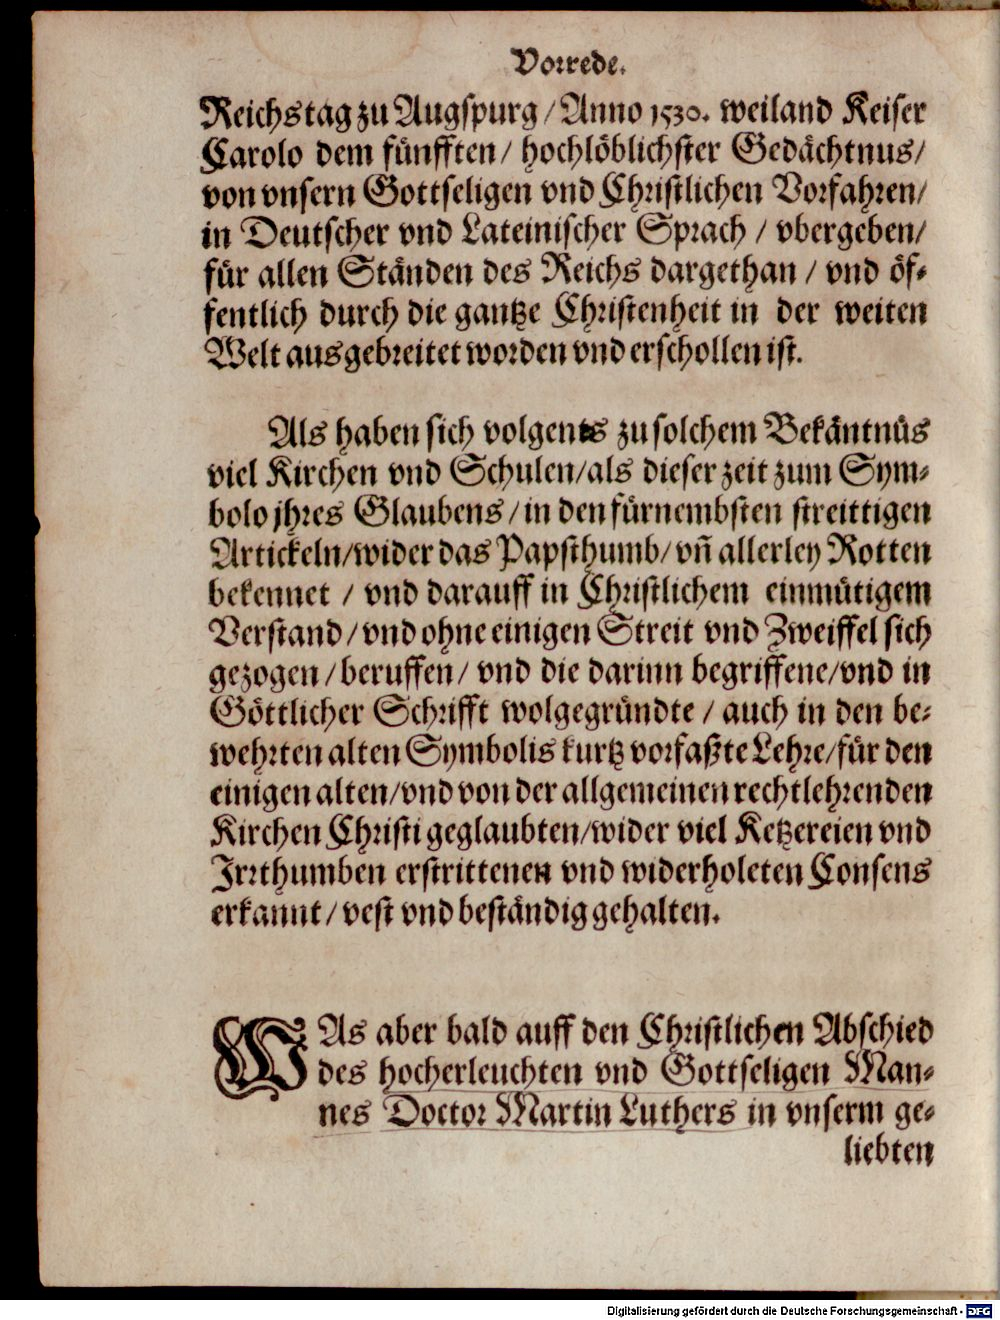 Vorrede.
Reichstag zu Augspurg / Anno 1530. weiland Keiser
Carolo dem fünfften / hochlöblichster Gedächtnus /
von vnsern Gottseligen vnd Christlichen Vorfahren /
in Deutscher vnd Lateinischer Sprach / vbergeben /
für allen Ständen des Reichs dargethan / vnd öf-
fentlich durch die gantze Christenheit in der weiten
Welt ausgebreitet worden vnd erschollen ist.
Als haben sich volgents zu solchem Bekäntnüs
viel Kirchen vnd Schulen / als dieser zeit zum Sym-
bolo jhres Glaubens / in den fürnembsten streittigen
Artickeln / wider das Papsthumb / vñ allerley Rotten
bekennet / vnd darauff in Christlichem einmütigem
Verstand / vnd ohne einigen Streit vnd Zweiffel sich
gezogen / beruffen / vnd die darinn begriffene / vnd in
Göttlicher Schrifft wolgegründte / auch in den be-
wehrten alten Symbolis kurtz vorfaßte Lehre / für den
einigen alten / vnd von der allgemeinen rechtlehrenden
Kirchen Christi geglaubten / wider viel Ketzereien vnd
Irrthumben erstrittenen vnd widerholeten Consens
erkannt / vest vnd beständig gehalten.
WAs aber bald auff den Christlichen Abschied
des hocherleuchten vnd Gottseligen Man-
nes Doctor Martin Luthers in vnserm ge-
liebten
Digitalisierung gefördert durch die Deutsche Forschungsgemeinschaft - DFG